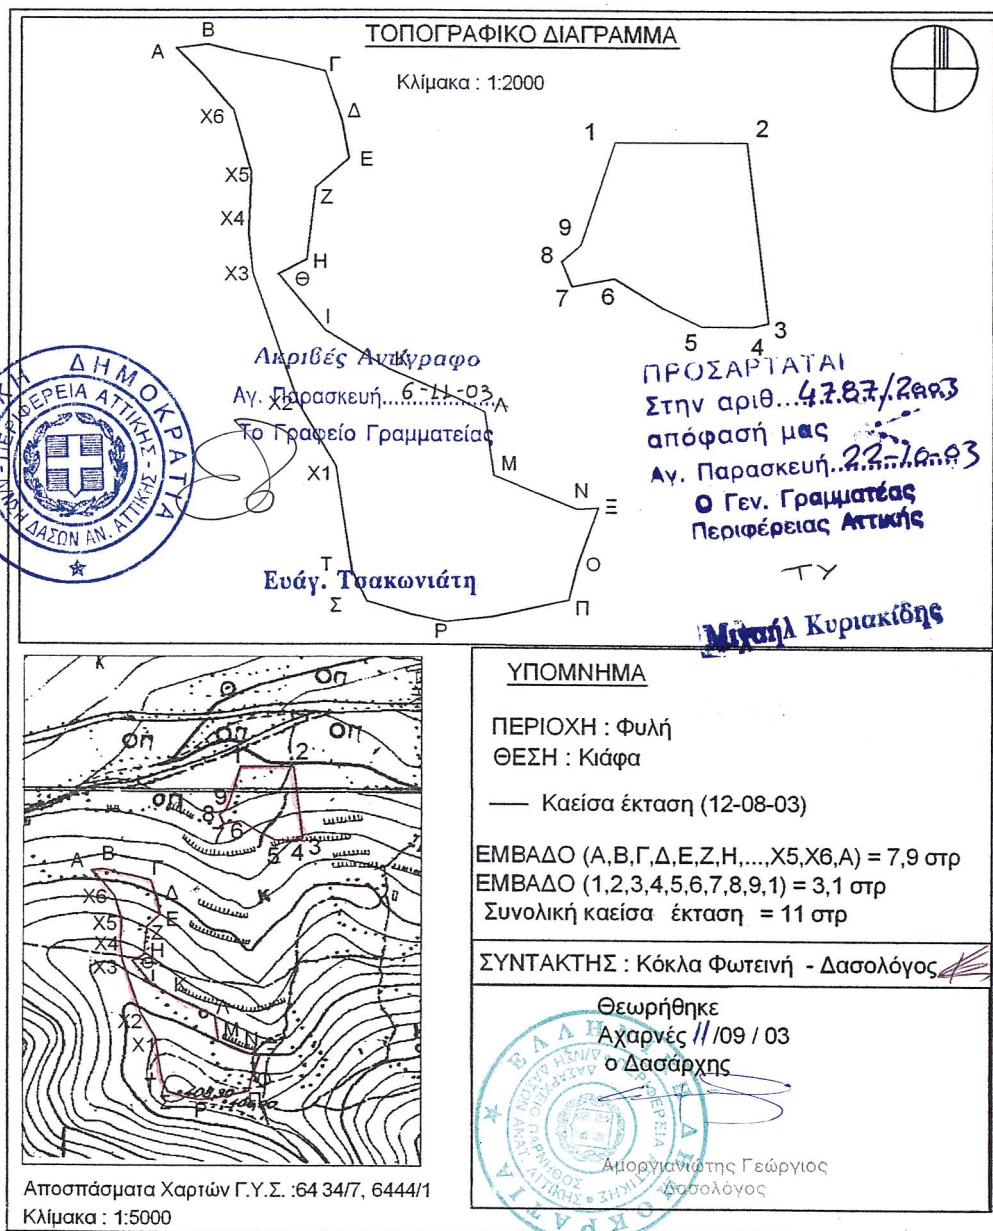 ΤΟΠΟΓΡΑΦΙΚΟ ΔΙΑΓΡΑΜΜΑ
Κλίμακα : 1:2000
Α
Β
Γ
Δ
Ε
Ζ
Η
Θ
Ι
Κ
Λ
Μ
Ν
Ξ
Ο
Π
Ρ
Σ
Τ
Χ1
Χ2
Χ3
Χ4
Χ5
Χ6
1
2
3
4
5
6
7
8
9
Ακριβές Αντίγραφο
Αγ. Παρασκευή 6-11-03
Το Γραφείο Γραμματείας
Ευάγ. Τσακωνιάτη
ΔΗΜΟΚΡΑΤΙΑ
ΠΕΡΙΦΕΡΕΙΑ ΑΤΤΙΚΗΣ
ΔΑΣΩΝ ΑΝ. ΑΤΤΙΚΗΣ
ΠΡΟΣΑΡΤΑΤΑΙ
Στην αριθ...4787/2003
απόφασή μας
Αγ. Παρασκευή 22-10-03
Ο Γεν. Γραμματέας
Περιφέρειας Αττικής
ΤΥ
Μιχαήλ Κυριακίδης
κ
Οπ
Θ
Οπ
Οπ
Οπ
2
9
8
6
5
4
3
Α
Β
Γ
Δ
Ε
Ζ
Η
Θ
Ι
Λ
Μ
Ν
Χ6
Χ5
Χ4
Χ3
Χ2
Χ1
Σ
Ρ
Π
κ
Αποσπάσματα Χαρτών Γ.Υ.Σ. :64 34/7, 6444/1
Κλίμακα : 1:5000
ΥΠΟΜΝΗΜΑ
ΠΕΡΙΟΧΗ : Φυλή
ΘΕΣΗ : Κιάφα
Καείσα έκταση (12-08-03)
ΕΜΒΑΔΟ (Α,Β,Γ,Δ,Ε,Ζ,Η,...,Χ5,Χ6,Α) = 7,9 στρ
ΕΜΒΑΔΟ (1,2,3,4,5,6,7,8,9,1) = 3,1 στρ
Συνολική καείσα έκταση = 11 στρ
ΣΥΝΤΑΚΤΗΣ : Κόκλα Φωτεινή - Δασολόγος
Θεωρήθηκε
Αχαρνές 11/09 / 03
ο Δασάρχης
Αμοργιανιώτης Γεώργιος
Δασολόγος